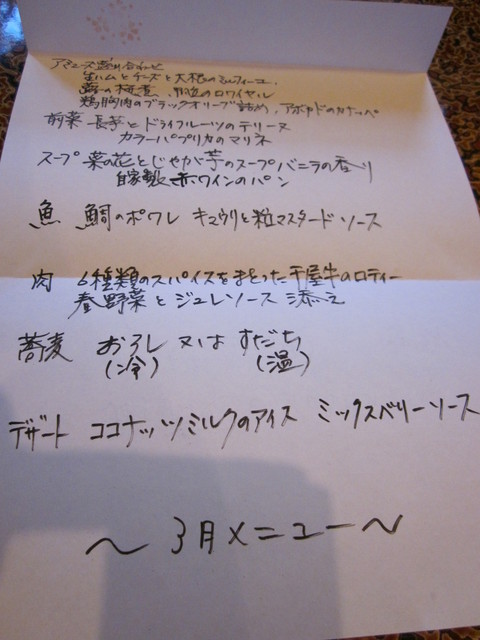 アミューズ盛り合わせ
生ハムとチーズと大根のミルフィーユ、
の梅煮、のロワイヤル
鶏胸肉のブラックオリーブ詰め、アボカドのカナッペ
前菜 長芋とドライフルーツのテリーヌ
カラーパプリカのマリネ
スープ 菜の花とじゃが芋のスープ バニラの香り
自家製 赤ワインのパン
魚 鯛のポワレ キュウリと粒マスタードソース
肉 6種類のスパイスをまとった千屋牛のロティー
春野菜とジュレソース添え
蕎麦 おろし 又は すだち
(冷) (温)
デザート ココナッツミルクのアイス ミックスベリーソース
〜 3月メニュー 〜